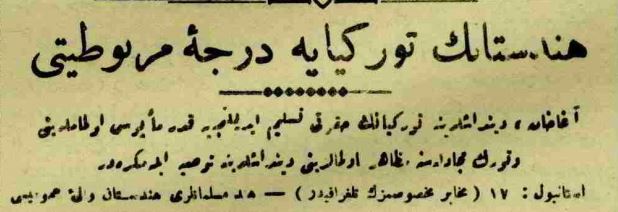 هندستانك توركيايه درجۀ مربوطيتى
آغاخان، ديندا‌شلرينه توركيانك حقوقى تسليم ايديلنجيه قدر مأيوس اولمامالرينى
وتورك مجاهداتنه مظاهر اولمالرينى ديندا‌شلرينه توصيه ايتمكده‌در
استانبول : ١٧ ( مخابر مخصوصمزك تلغرافيدر ) — هند مسلمانلرى هندستان والئ عموميسى